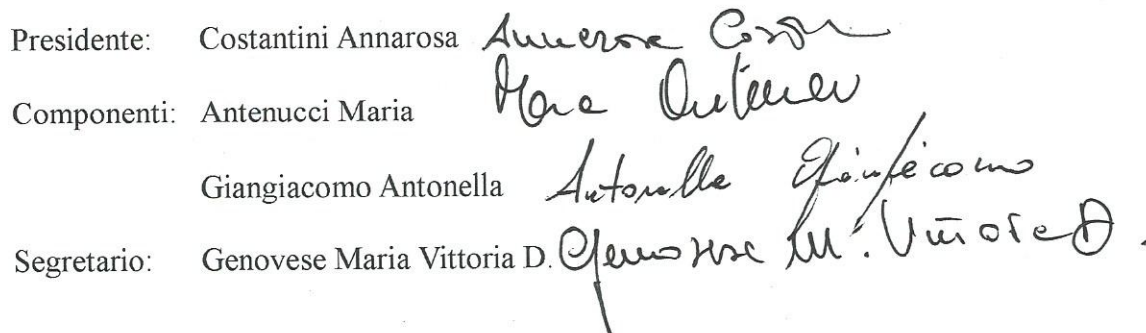 Presidente: Costantini Annarosa Annarosa Cost
Componenti: Antenucci Maria Maria Antenucci
Giangiacomo Antonella Antonella Giangiacomo
Segretario: Genovese Maria Vittoria D. Genovese M. Vittoria D.